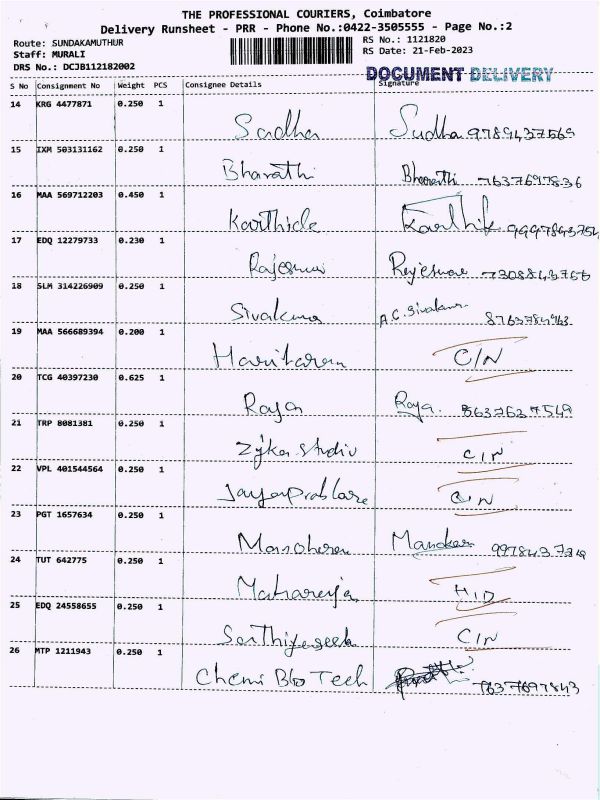 THE PROFESSIONAL COURIERS, Coimbatore
Delivery Runsheet - PRR - Phone No.:0422-3505555 - Page No.:2
Route: SUNDAKAMUTHUR
RS No.: 1121820
Staff: MURALI
RS Date: 21-Feb-2023
DRS No.: DCJB112182002
DOCUMENT DELIVERY
S No Consignment No Weight PCS Consignee Details Signature
14 KRG 4477871 0.250 1
Sudha Sudha 9789437569
15 IXM 503131162 0.250 1
Bharathi Bharathi 7637697836
16 MAA 569712203 0.450 1
Karthick Karthik
17 EDQ 12279733 0.230 1
Rajeswari 7308843766
18 SLM 314226909 0.250 1
Sivakumar A.C. Sivakumar 8763784963
19 MAA 566689394 0.200 1
Hariharan C/N
20 TCG 40397230 0.625 1
Raja Raja. 8637637549
21 TRP 8081381 0.250 1
Zyka Studio C/N
22 VPL 401544564 0.250 1
C/N
23 PGT 1657634 0.250 1
Manoharan 9978437349
24 TUT 642775 0.250 1
Maharaja H/D
25 EDQ 24558655 0.250 1
C/N
26 MTP 1211943 0.250 1
Chemi Bio Tech 7637697843